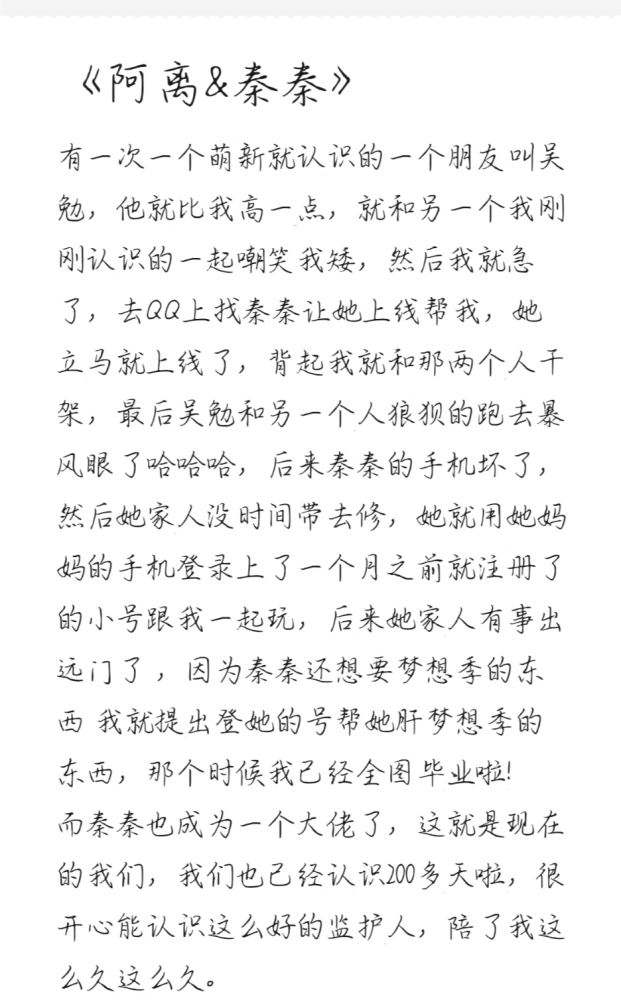 《阿离&秦秦》
有一次一个萌新就认识的一个朋友叫吴
勉，他就比我高一点，就和另一个我刚
刚认识的一起嘲笑我矮，然后我就急
了，去QQ上找秦秦让她上线帮我，她
立马就上线了，背起我就和那两个人干
架，最后吴勉和另一个人狼狈的跑去暴
风眼了哈哈哈，后来秦秦的手机坏了，
然后她家人没时间带去修，她就用她妈
妈的手机登录上了一个月之前就注册了
的小号跟我一起玩，后来她家人有事出
远门了，因为秦秦还想要梦想季的东
西 我就提出登她的号帮她肝梦想季的
东西，那个时候我已经全图毕业啦！
而秦秦也成为一个大佬了，这就是现在
的我们，我们也已经认识200多天啦，很
开心能认识这么好的监护人，陪了我这
么久这么久。